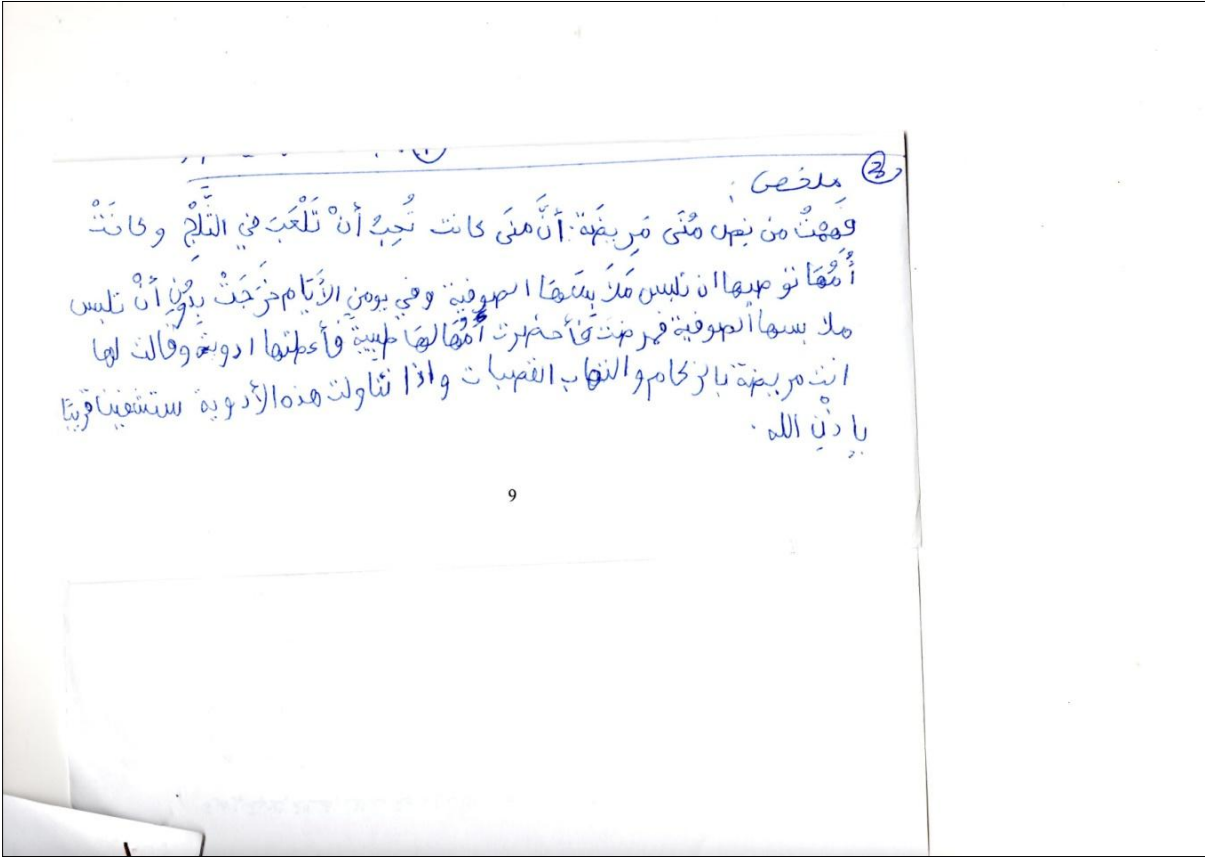 ③ ملخص :
فهمتُ من نص مُنَى مَرِيضَة: أنَّ منَى كانت تُحِبُ أنْ تَلْعَبَ في الثَّلْجِ وكانَتْ
أُمُهَا توصيها ان تلبس مَلاَبِسَهَا الصوفية وفي يومنِ الأيَام خَرَجَتْ بِدُونِ أنْ تلبس
ملابسها الصوفية فمرضت فأحضرت أُمُهَا لهَا طبيبةً فأعطتها ادوية وقالت لها
انت مريضة بالزكام والتهاب القصبات واذا تناولت هذه الأدوية ستشفين قريبًا
بإذْنِ الله .
9